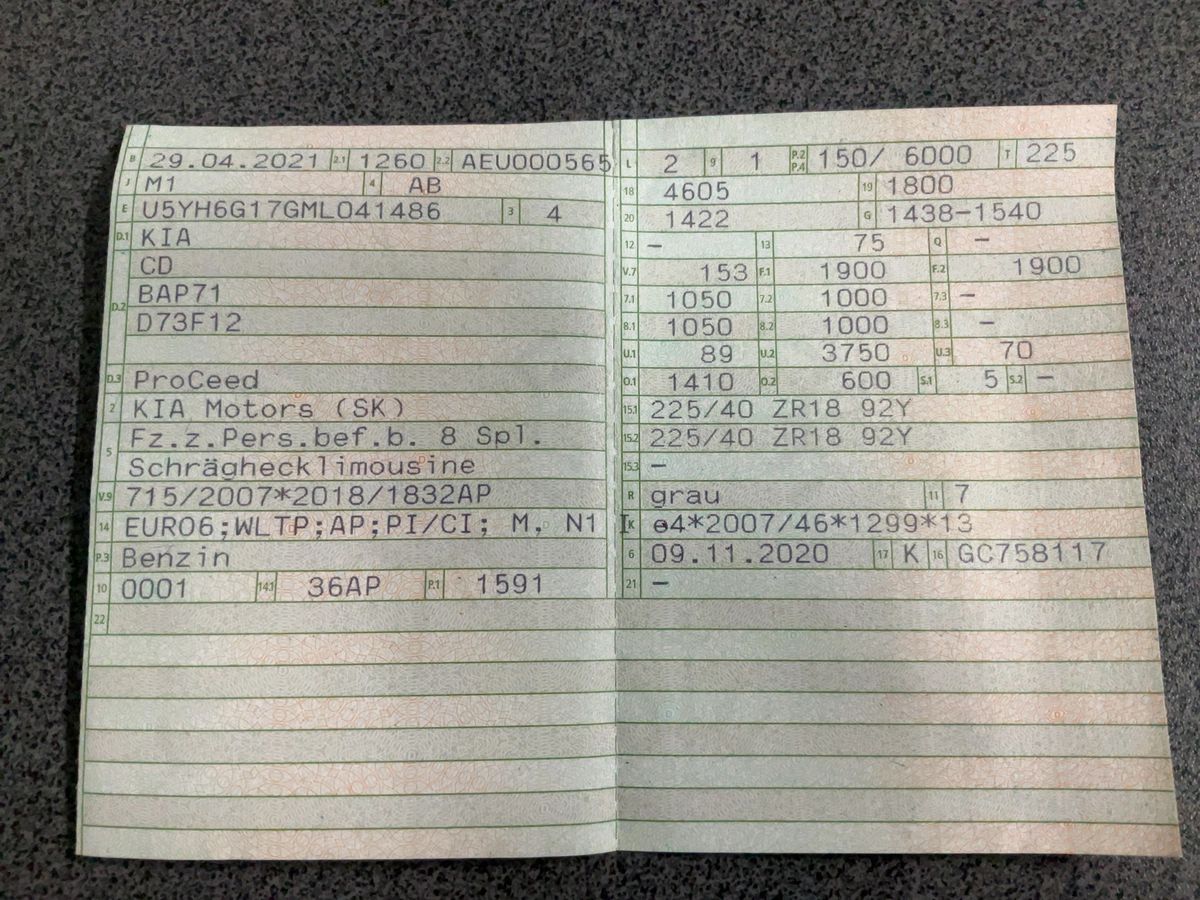 B 29.04.2021 2.1 1260 2.2 AEU000565
J M1 4 AB
E U5YH6G17GML041486 3 4
D.1 KIA
CD
D.2 BAP71
D73F12
D.3 ProCeed
2 KIA Motors (SK)
5 Fz.z.Pers.bef.b. 8 Spl.
Schräghecklimousine
V.9 715/2007*2018/1832AP
14 EURO6;WLTP;AP;PI/CI; M, N1 I
P.3 Benzin
10 0001 14.1 36AP P.1 1591
22
L 2 9 1 P.2 P.4 150/ 6000 T 225
18 4605 19 1800
20 1422 G 1438-1540
12 – 13 75 Q –
V.7 153 F.1 1900 F.2 1900
7.1 1050 7.2 1000 7.3 –
8.1 1050 8.2 1000 8.3 –
U.1 89 U.2 3750 U.3 70
O.1 1410 O.2 600 S.1 5 S.2 –
15.1 225/40 ZR18 92Y
15.2 225/40 ZR18 92Y
15.3 –
R grau 11 7
K e4*2007/46*1299*13
6 09.11.2020 17 K 16 GC758117
21 –